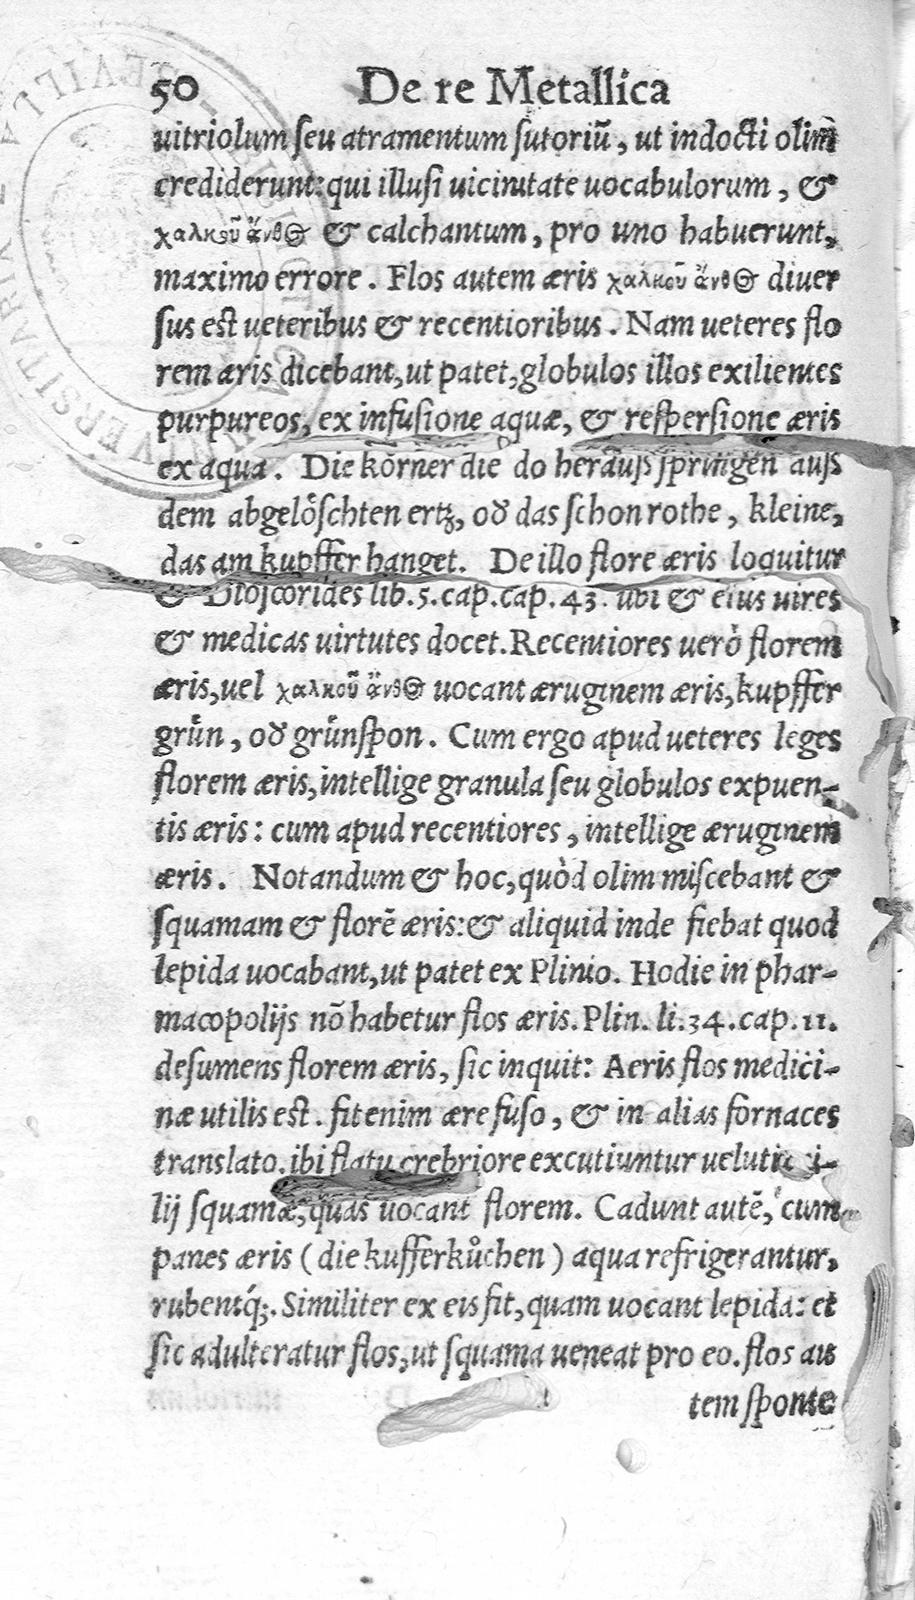 50 De re Metallica
uitriolum ſeu atramentum ſutoriũ, ut indocti olim
crediderunt: qui illuſi uicinitate uocabulorum, &
χαλκοῦ ἄνθος & calchantum, pro uno habuerunt,
maximo errore. Flos autem æris χαλκοῦ ἄνθος diuer
ſus est ueteribus & recentioribus. Nam ueteres flo
rem æris dicebant, ut patet, globulos illos exilientes
purpureos, ex infuſione aquæ, & reſperſione æris
ex aqua. Die kõrner die do herauſs ſpringen auſs
dem abgelöſchten ertʒ, oð das ſchon rothe, kleine,
das am kupffer hanget. De illo flore æris loquitur
& Dioſcorides lib. 5. cap. cap. 43. ubi & eius uires
& medicas uirtutes docet. Recentiores uerò florem
æris, uel χαλκοῦ ἄνθος uocant æruginem æris, kupffer
grün, oð grünſpon. Cum ergo apud ueteres leges
florem æris, intellige granula ſeu globulos expuen-
tis æris: cum apud recentiores, intellige æruginem
æris. Notandum & hoc, quòd olim miſcebant &
ſquamam & florẽ æris: & aliquid inde fiebat quod
lepida uocabant, ut patet ex Plinio. Hodie in phar-
macopolijs nõ habetur flos æris. Plin. li. 34. cap. 11.
deſumens florem æris, ſic inquit: Aeris flos medici-
næ utilis est. fit enim ære fuſo, & in alias fornaces
translato. ibi flatu crebriore excutiuntur ueluti
lij ſquamæ, quas uocant florem. Cadunt autẽ, cum
panes æris (die kufferkůchen) aqua refrigerantur,
rubentq́;. Similiter ex eis fit, quam uocant lepida: et
ſic adulteratur flos, ut ſquama ueneat pro eo. flos au
tem ſponte